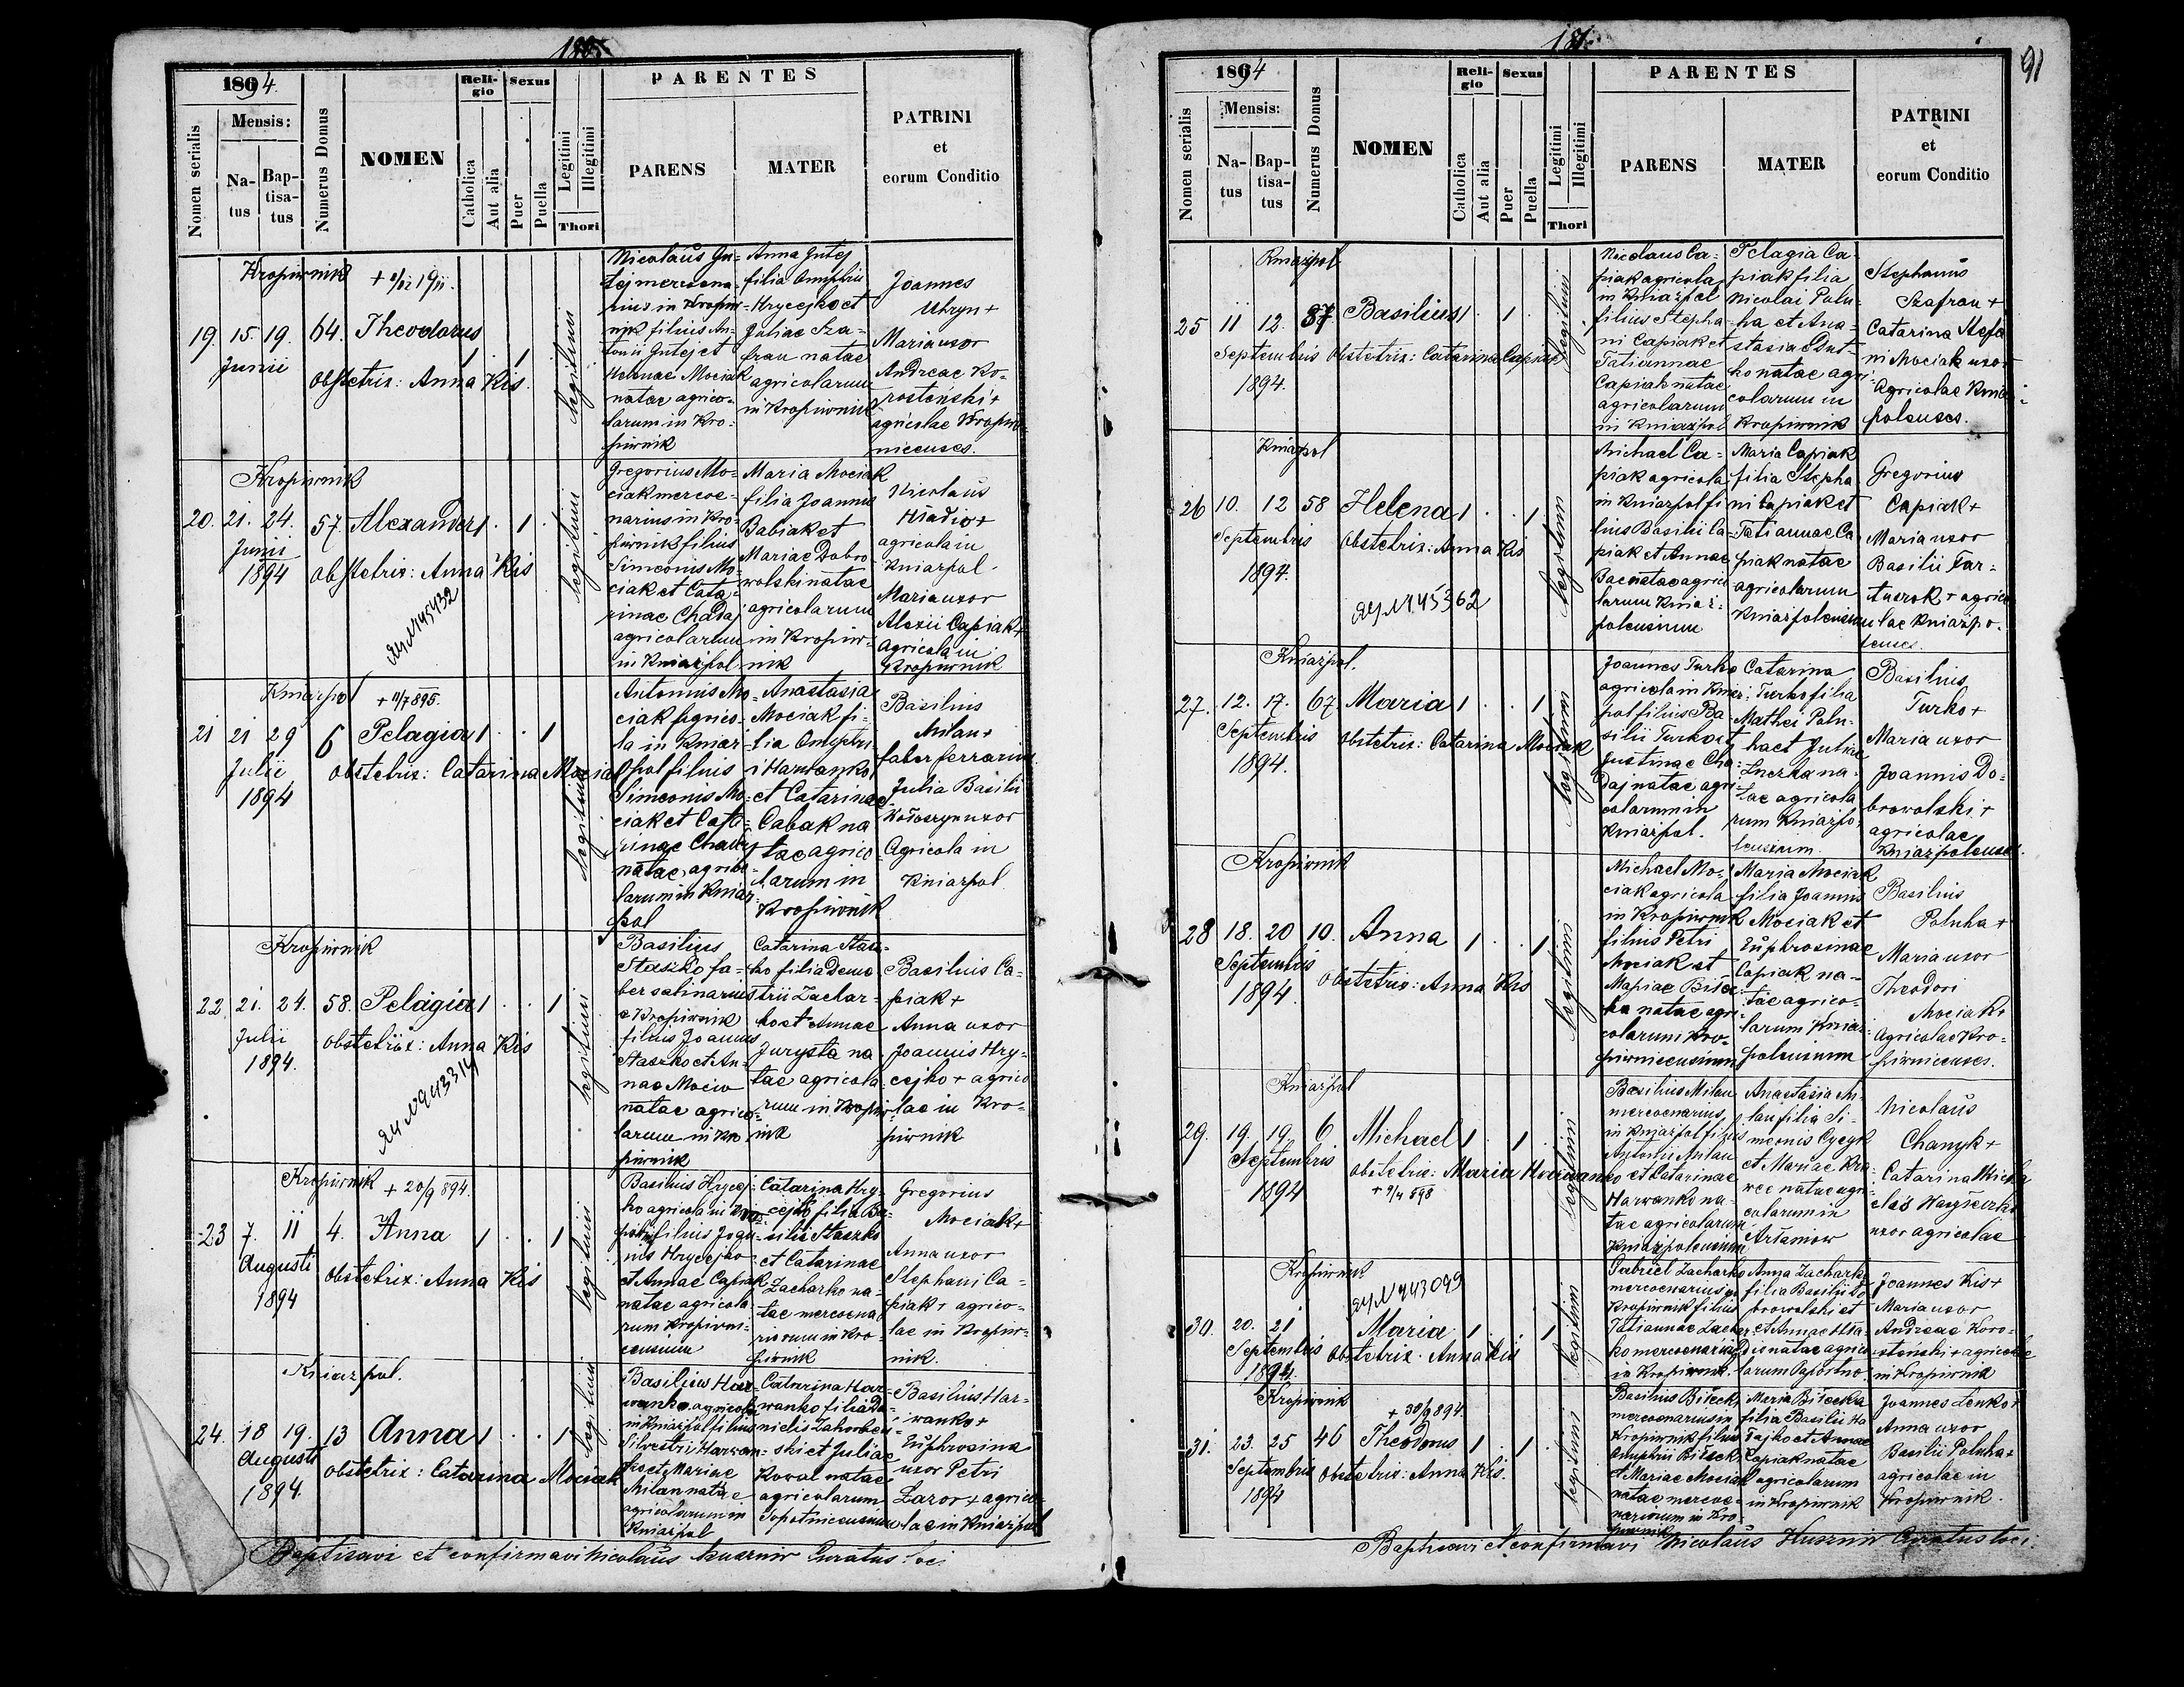 180.
1894.
Nomen serialis
Mensis:
Na-
tus
Bap-
tisa-
tus
Numerus Domus
NOMEN
Reli-
gio
Catholica
Aut alia
Sexus
Puer
Puella
Legitimi
Illegitimi
Thori
PARENTES
PARENS
MATER
PATRINI
et
eorum Conditio
Kropiwnik
19. 15. 19. 64. Theodorus 1 . 1 .
Junii
Obstetrix: Anna Kis.
legitimi
Nicolaus Gu-
tej mercena-
rius in Kropiw-
nik filius An-
tonii Gutej et
Helenae Mociak
natae agrico-
larum in Kro-
piwnik
Anna Gutej
filia Onuphrii
Hrycejko et
Juliae Sza-
fran natae
agricolarum
in Kropiwnik
Joannes
Uhryn +
Maria uxor
Andreae Ko-
rosteński +
agricolae Kropiw-
nicenses.
Kropiwnik
20. 21. 24. 57. Alexander 1 . 1 .
Junii
1894
Obstetrix: Anna Kis
legitimi
Gregorius Mo-
ciak merce-
narius in Kro-
piwnik filius
Simeonis Mo-
ciak et Cata-
rinae Chadaj
agricolarum
in Kniazpol
Maria Mociak
filia Joannis
Babiak et
Mariae Dobro
wolski natae
agricolarum
in Kropiw-
nik
Nicolaus
Hładio +
agricola in
Kniazpol
Maria uxor
Alexii Capiak +
Agricola in
Kropiwnik
Kniazpol
+ 11/7 895.
21 21 29 6 Pelagia 1 . . 1
Julii
1894
Obstetrix: Catarina Mociak
legitimi
Antonius Mo-
ciak agrico-
la in Kniaz-
pol filius
Simeonis Mo-
ciak et Cata-
rinae Chadaj
natae agrico-
larum in Kniaz-
pol
Anastasia
Mociak fi-
lia Onuphri
i Harwanko
et Catarinae
Cabak na
tae agrico-
larum in
Kropiwnik
Basilius
Milan +
faber ferrarius
Julia Basilii
Kołoszyn uxor
Agricola in
Kniazpol
Kropiwnik
22 21. 24. 58. Pelagia 1 . . 1
Julii
1894.
Obstetrix: Anna Kis
legitimi
Basilius
Staszko fa-
ber salinarius
e Kropiwnik
filius Joannis
Staszko et An-
nae Mociw
natae agrico-
larum in Kro
piwnik
Catarina Stasz-
ko filia Deme
trii Zachar-
ko et Annae
Jurysta na
tae agricola-
rum in Kropiw-
nik
Basilius Ca-
piak +
Anna uxor
Joannis Hry-
cejko + agrico
lae in Kro-
piwnik
Kropiwnik + 20/9 894.
23 7. 11 4. Anna 1 . . 1
Augusti
1894
Obstetrix: Anna Kis
legitimi
Basilius Hrycej-
ko agricola in Kro-
filius Joan-
nis Hrycejko
et Annae Capiak
natae agricola-
rum Kropiwni-
censium
Catarina Hry-
cejko filia Ba-
silii Staszko
et Catarinae
Zacharko na-
tae mercena
riorum in Kro-
piwnik
Gregorius
Mociak +
Anna uxor
Stephani Ca-
piak + agrico-
lae in Kropiw-
nik.
Kniazpol.
24. 18 19. 13 Anna 1 . . 1
Augusti
1894.
Obstetrix: Catarina Mociak
legitimi
Basilius Har-
wanko agricola
in Kniazpol filius
Silvestri Harwan-
ko et Mariae
Milan natae
agricolarum in
Kniazpol
Catarina Har-
wanko filia Da-
nielis Zahorbeń-
ski et Juliae
Kowal natae
agricolarum
Sopotnicensium
Basilius Har-
wanko +
Euphrosina
uxor Petri
Lazor + agrico-
lae in Kniazpol
Baptisavi et confirmavi Nicolaus Huznir Curatus loci
181.
91
1894
Nomen serialis
Mensis:
Na-
tus
Bap-
tisa-
tus
Numerus Domus
NOMEN
Reli-
gio
Catholica
Aut alia
Sexus
Puer
Puella
Legitimi
Illegitimi
Thori
PARENTES
PARENS
MATER
PATRINI
et
eorum Conditio
Kniazpol
25 11 12. 37. Basilius 1 . 1 .
Septembris Obstetrix: Catarina Capiak
1894.
legitimi
Nicolaus Ca-
piak agricola
in Kniazpol
filius Stepha
ni Capiak et
Tatiannae
Capiak natae
agricolarum
in Kniazpol
Pelagia Ca-
piak filia
Nicolai Polu-
ha et Ana-
stasia Dut-
ko natae agri-
colarum in
Kropiwnik
Stephanus
Szafran +
Catarina Stefa
ni Mociak uxor
Agricolae Kniaz-
polenses.
Kniazpol
26 10. 12 58 Helena 1 . . 1
Septembris Obstetrix: Anna Kis
1894.
legitimi
Michael Ca-
piak agricola
in Kniazpol fi
lius Basilii Ca
piak et Annae
Bac natae agrico
larum Kniaz-
polensium
Maria Capiak
filia Stepha
ni Capiak et
Tatiannae Ca
piak natae
agricolarum
Kniazpolensium
Gregorius
Capiak +
Maria uxor
Basilii Tar-
+ agrico
lae Kniazpo-
lenses.
Kniazpol.
27. 12. 17. 67 Maria 1 . . 1
Septembris Obstetrix: Catarina Mociak
1894.
legitimi
Joannes Turko
agricola in Kniaz-
pol filius Ba-
silii Turko et
Justinae Cha-
daj natae agri-
colarum in
Kniazpol.
Catarina
Turko filia
Mathei Polu-
ha et Juliae
na-
tae agricola
rum Kniazpo-
lensium.
Basilius
Turko +
Maria uxor
Joannis Do-
browolski +
agricolae
Kniazpolenses.
Kropiwnik
28 18. 20 10. Anna 1 . . 1
Septembris
1894.
Obstetrix: Anna Kis
legitimi
Michael Mo-
ciak agricola
in Kropiwnik
filius Petri
Mociak et
Mariae Biłec-
ka natae agri-
colarum Kro-
piwnicensium
Maria Mociak
filia Joannis
Mociak et
Euphrosinae
Capiak na-
tae agrico-
larum Kniaz-
polensium
Basilius
Poluha +
Maria uxor
Theodori
Mociak +
Agricolae Kro-
piwnicenses.
Kniazpol
29. 19. 19. 6 Michael 1 . 1 .
Septembris
1894
Obstetrix: Maria Harwanko
legitimi
Basilius Milan
mercenarius
in Kniazpol filius
Antonii Milan
et Catarinae
Harwanko na-
tae agricolarum
Kniazpolensium
Anastasia Mi-
lan filia Si-
meonis Cycyk
et Mariae Kra-
wec natae agri-
colarum in
Artamow
Nicolaus
Chanyk +
Catarina Micha
elis
uxor agricolae
Kropiwnik
30. 20. 21 Maria 1 . . 1
Septembris Obstetrix: Anna Kis
1894
legitimi
Gabriel Zacharko
mercenarius in
Kropiwnik filius
Tatiannae Zachar-
ko mercenariae
in Kropiwnik.
Anna Zacharko
filia Basilii Do
browolski et
et Annae Hła-
dio natae agrico
larum
Joannes Kis +
Maria uxor
Andreae Koro-
stenski + agricolae
in Kropiwnik
Kropiwnik
+ 30/9 894.
31. 23. 25 46 Theodorus 1 . 1 .
Septembris Obstetrix: Anna Kis.
1894
legitimi
Basilius Biłecki
mercenarius in
Kropiwnik filius
Onuphrii Biłecki
et Mariae Mociak
natae merce-
nariorum in Kro-
piwnik
Maria Biłecka
filia Basilii Ha
Capiak natae
agricolarum
in Kropiwnik
Joannes Lenko +
Anna uxor
Basilii Poluha +
agricolae in
Kropiwnik.
Baptisavi et confirmavi Nicolaus Huznir Curatus loci.